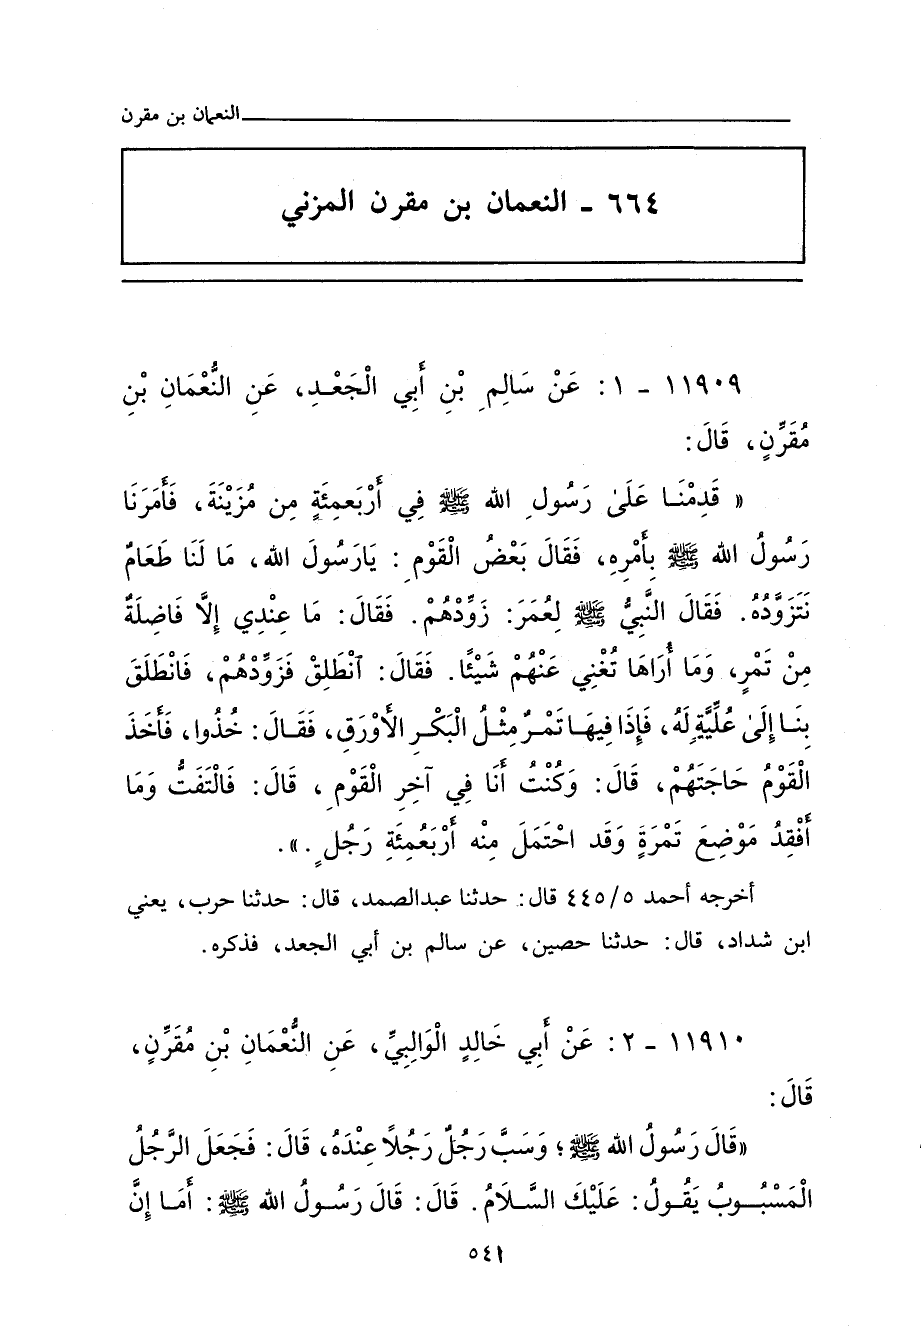 النعمان بن مقرن
٦٦٤ ـ النعمان بن مقرن المزني
١١٩٠٩ ـ ١ : عَنْ سَالِمِ بْنِ أَبِي الْجَعْدِ، عَنِ النُّعْمَانِ بْنِ
مُقَرِّنٍ، قَالَ:
« قَدِمْنَا عَلَىٰ رَسُولِ الله ﷺ فِي أَرْبَعمِئَةٍ مِن مُزَيْنَةَ، فَأَمَرَنَا
رَسُولُ الله ﷺ بِأَمْرِهِ، فَقَالَ بَعْضُ الْقَوْمِ : يَارَسُولَ الله، مَا لَنَا طَعَامٌ
نَتَزَوَّدُهُ. فَقَالَ النَّبِيُّ ﷺ لِعُمَرَ: زَوِّدْهُمْ. فَقَالَ: مَا عِنْدِي إِلَّا فَاضِلَةٌ
مِنْ تَمْرٍ، وَمَا أُرَاهَا تُغْنِي عَنْهُمْ شَيْئًا. فَقَالَ: ٱنْطَلِقْ فَزَوِّدْهُمْ، فَانْطَلَقَ
بِنَا إِلَىٰ عُلِّيَّةٍ لَهُ، فَإِذَا فِيهَا تَمْرٌ مِثْلُ الْبَكْرِ الأَوْرَقِ، فَقَالَ: خُذُوا، فَأَخَذَ
الْقَوْمُ حَاجَتَهُمْ، قَالَ: وَكُنْتُ أَنَا فِي آخِرِ الْقَوْمِ ، قَالَ: فَالْتَفَتُّ وَمَا
أَفْقِدُ مَوْضِعَ تَمْرَةٍ وَقَد احْتَمَلَ مِنْه أَرْبَعُمِئَةِ رَجُلٍ .».
أخرجه أحمد ٤٤٥/٥ قال: حدثنا عبدالصمد، قال: حدثنا حرب، يعني
ابن شداد، قال: حدثنا حصين، عن سالم بن أبي الجعد، فذكره.
١١٩١٠ ـ ٢ : عَنْ أَبِي خَالِدٍ الْوَالِبِيِّ، عَنِ النُّعْمَانِ بْنِ مُقَرِّنٍ،
قَالَ:
«قَالَ رَسُولُ الله ﷺ؛ وَسَبَّ رَجُلٌ رَجُلاً عِنْدَهُ، قَالَ: فَجَعَلَ الرَّجُلُ
الْمَسْبُوبُ يَقُولُ: عَلَيْكَ السَّلَامُ. قَالَ: قَالَ رَسُولُ الله ﷺ: أَمَا إِنَّ
٥٤١